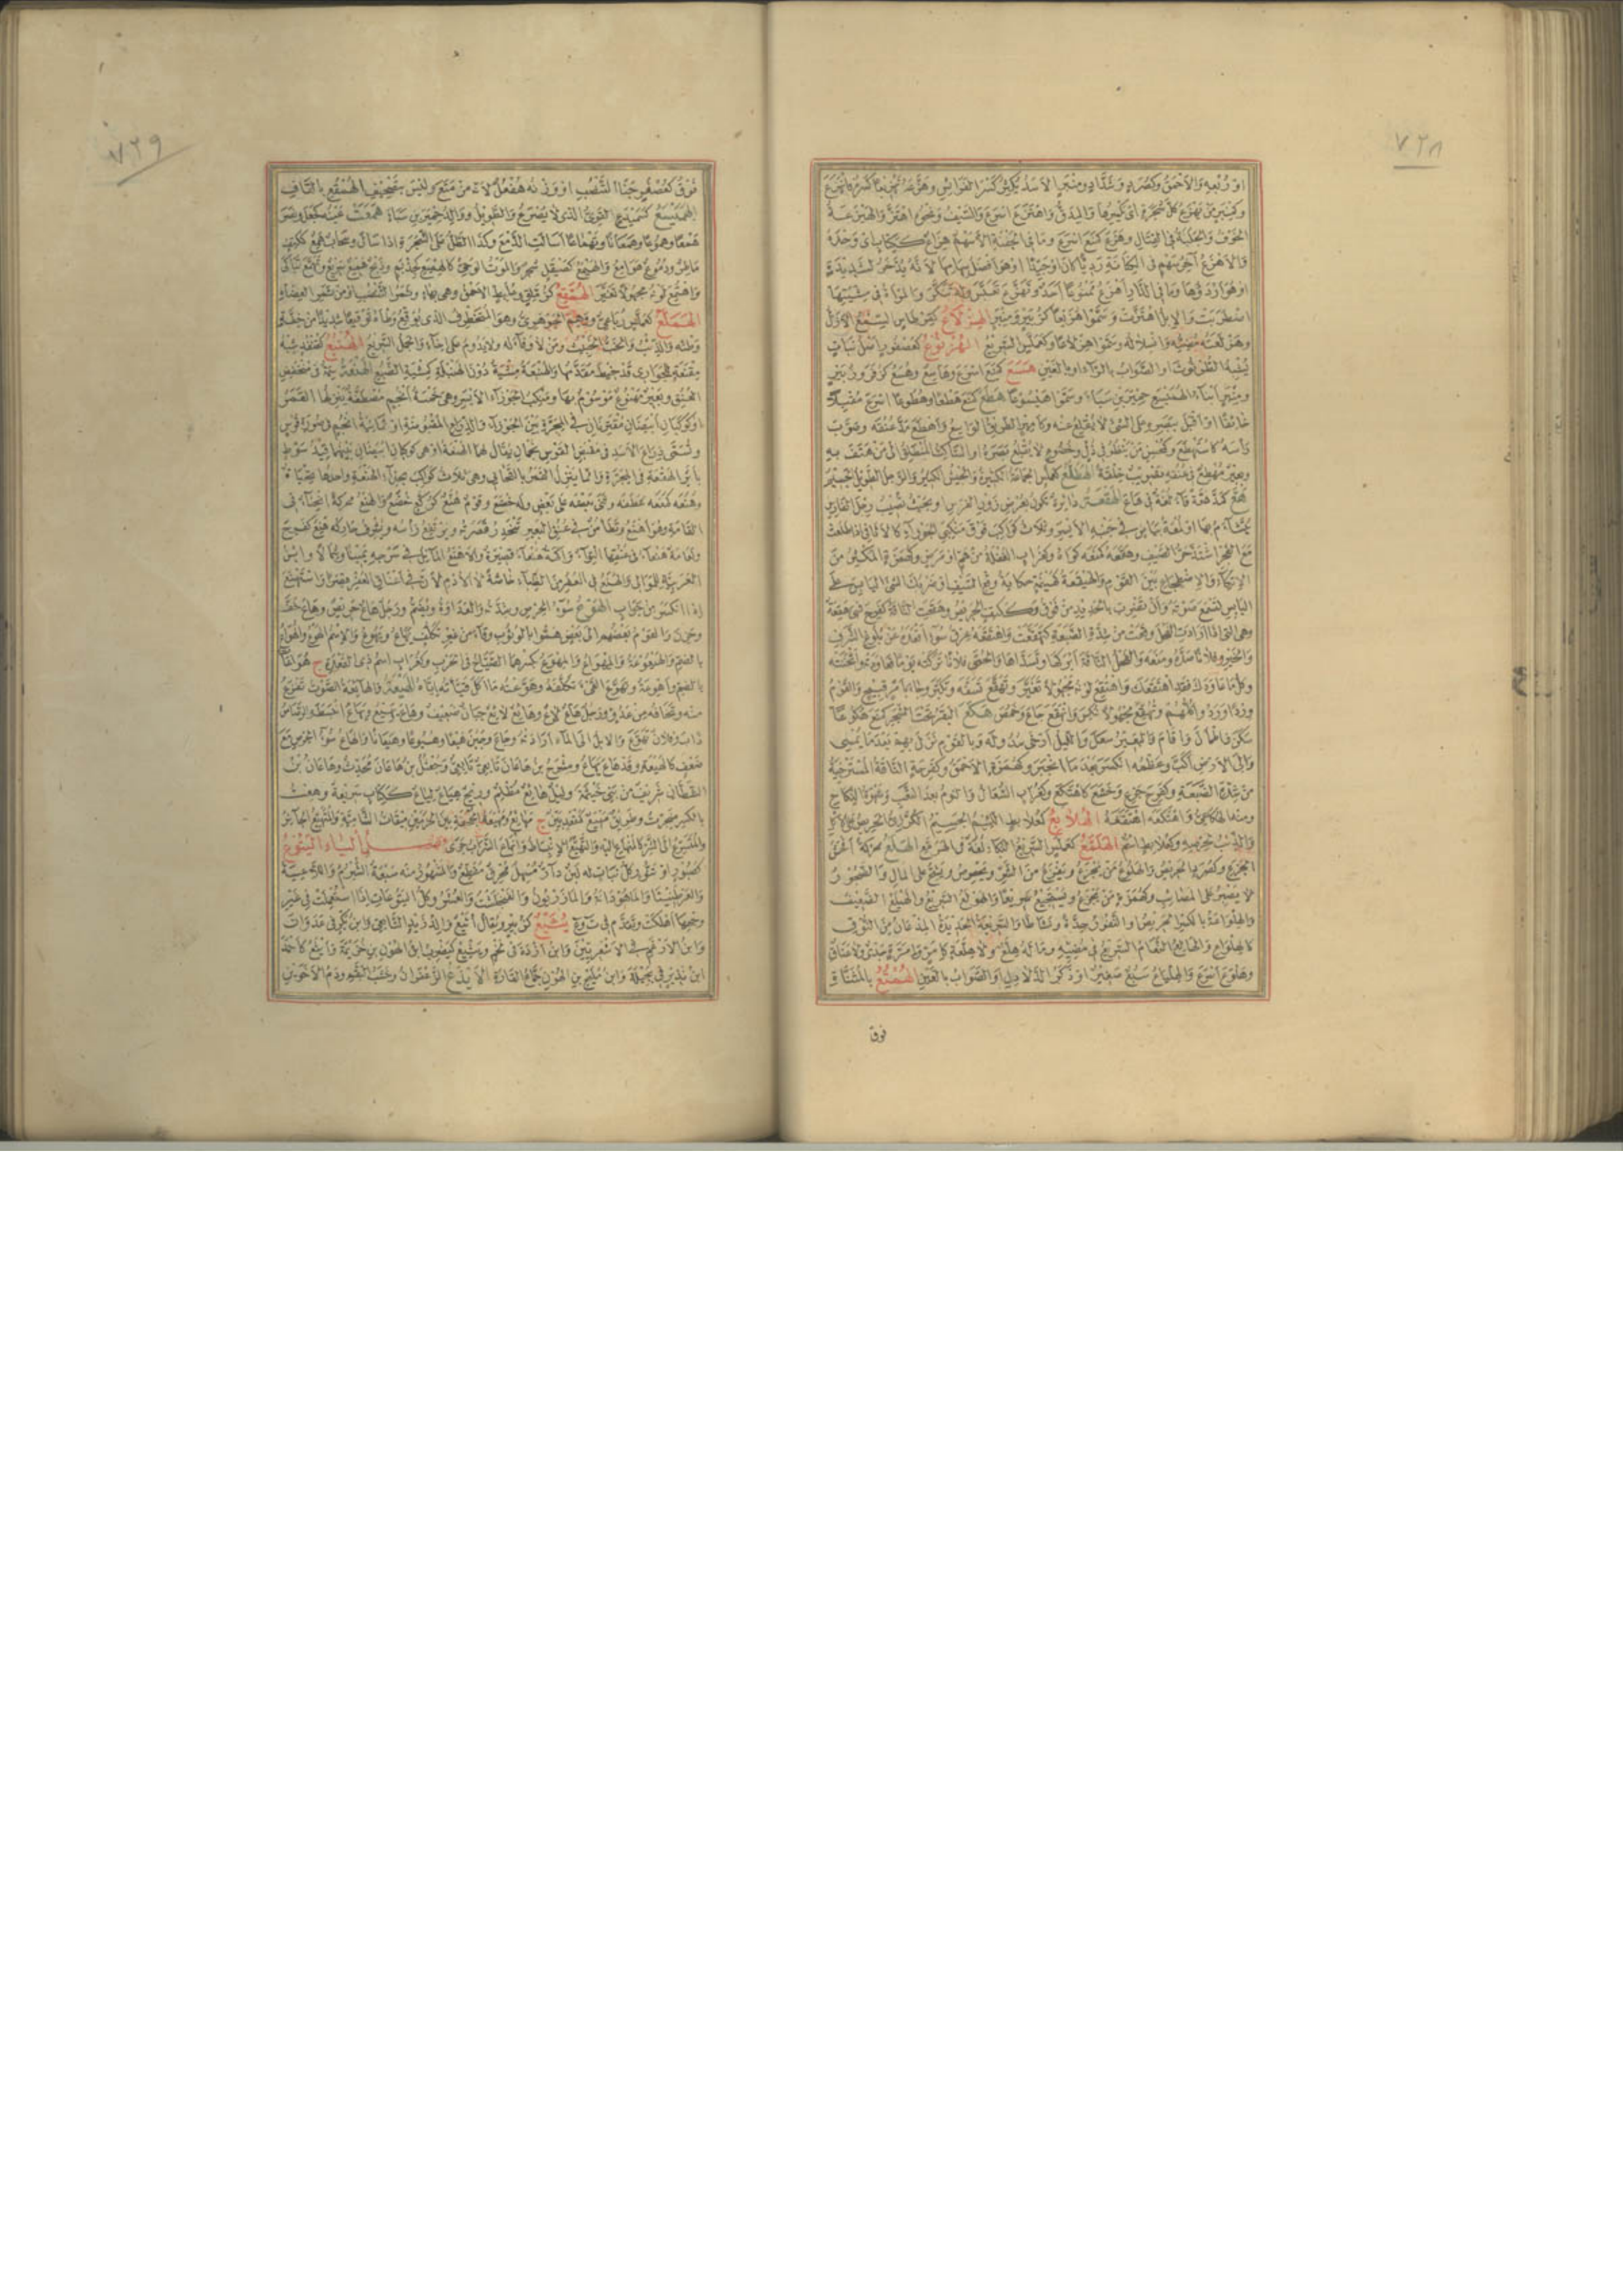 ٧٢٨
او رُبْعِهِ وَالأَحْمَقُ وَكَصُرَدٍ وَشَدَّادٍ وَمِنْبَرٍ الأَسَدُ يُكْثِرُ كَسْرَ الفَرَائِسِ وَهَزَّعَهُ تَهْزِيعًا كَسَّرَهُ فَانْهَزَعَ
وَكَمِنْبَرٍ مَنْ يَهْزَعُ كُلَّ شَجَرَةٍ اى يَكْسِرُهَا وَالمِدَقُّ وَاهْتَزَعَ اسْرَعَ وَالسَّيْفُ وَنَحْوُهُ اهْتَزَّ وَالهَيْزَعَةُ
الخَوْفُ وَالجَلَبَةُ فى القِتَالِ وَهَزَعَ كَمَنَعَ اسْرَعَ وَمَا فى الجَعْبَةِ الأَسَهْمُ هِزَاعٍ كَكِتَابٍ اى وَحْدَهُ
وَالأَهْزَعُ آخِرُ سَهْمٍ فى الكِنَانَةِ رَدِيًّا كَانَ اوْ جَيِّدًا اوْ هُوَ أفْضَلُ سِهَامِهَا لأَنَّهُ يُدَّخَرُ لِشَدِيدَةٍ
اوْ هُوَ أرْدَؤُهَا وَمَا فى الدَّارِ أهْزَعُ مَمْنُوعًا أحَدٌ وَتَهَزَّعَ عَبَسَ وَلَهُ تَنَكَّرَ وَالمَرْأَةُ فى مِشْيَتِهَا
اضْطَرَبَتْ وَالإبِلُ اهْتَزَّتْ وَسَمَّوْا هُزَيْعًا كَزُبَيْرٍ وَمِنْبَرٍ الهِزْلَاعُ كَقِرْطَاسٍ السِّمْعُ الأَزَلُّ
وَهَزْلَعَتُهُ مُضِيُّهُ وَانْسِلَالُهُ وَسَمَّوْا هِزْلَاعًا وَكَعَمَلَّسٍ السَّرِيعُ الهُزْنُوعُ كَعُصْفُورٍ أصْلُ نَبَاتٍ
يُشْبِهُ الطُّرْثُوثَ او الصَّوَابُ بِالرَّاءِ او بِالغَيْنِ هَسَعَ كَمَنَعَ اسْرَعَ وَهَاسِعٌ وَهُسَعٌ كَزُفَرَ وَزُبَيْرٍ
وَمِنْبَرٍ أبْنَاءُ الهَمَيْسَعِ حِمْيَرَ بْنِ سَبَأٍ وَسَمَّوْا هَيْسُوعًا هَطَعَ كَمَنَعَ هَطْعًا وَهُطُوعًا اسْرَعَ مُقْبِلًا
خَائِفًا اوْ أقْبَلَ بِبَصَرِهِ عَلَى الشَّىْءِ لَا يُقْلِعُ عَنْهُ وَكَأمِيرٍ الطَّرِيقُ الوَاسِعُ وَأهْطَعَ مَدَّ عُنُقَهُ وَصَوَّبَ
رَأسَهُ كَاسْتَهْطَعَ وَكَمُحْسِنٍ مَنْ يَنْظُرُ فى ذُلٍّ وَخُضُوعٍ لَا يُقْلِعُ بَصَرَهُ او السَّاكِتُ المُنْطَلِقُ الى مَنْ هَتَفَ بِهِ
وَبَعِيرٌ مُهْطِعٌ فى عُنُقِهِ تَصْوِيبٌ خِلْقَةً الهَطَلَّعُ كَعَمَلَّسٍ الجَمَاعَةُ الكَثِيرَةُ وَالجَيْشُ الكَثِيرُ وَالرَّجُلُ الطَّوِيلُ الجَسِيمُ
هَعَّ كَمَدَّ هَعَّةً قَاءَ لُغَةٌ فى هَاعَ الهَقْعَةُ دَائِرَةٌ تَكُونُ بِعُرْضِ زَوْرِ الفَرَسِ او بِحَيْثُ تُصِيبُ رِجْلَ الفَارِسِ
يُتَشَاءَمُ بِهَا اوْ لُمْعَةُ بَيَاضٍ فى جَنْبِهِ الأَيْسَرِ وَثَلَاثُ كَوَاكِبَ فَوْقَ مَنْكِبَىِ الجَوْزَاءِ كَالأَثَافِى اذَا طَلَعَتْ
مَعَ الفَجْرِ اشْتَدَّ حَرُّ الصَّيْفِ وَهَقَعَهُ كَمَنَعَهُ كَوَاهُ وَكَغُرَابٍ الغَفْلَةُ مِنْ هَمٍّ اوْ مَرَضٍ وَكَهُمَزَةٍ المُكْثِرُ مِنَ
الاتِّكَاءِ وَالاضْطِجَاعِ بَيْنَ القَوْمِ وَالهَيْقَعَةُ كَهَيْنَمَةٍ حِكَايَةُ وَقْعِ السَّيْفِ اوْ ضَرْبُكَ الشَّىْءَ اليَابِسَ عَلَى
اليَابِسِ لِتَسْمَعَ صَوْتَهُ وَأنْ تَضْرِبَ بِالحَدِيدِ مِنْ فَوْقُ وَكَكَتِفٍ الحَرِيصُ وَهَقِعَتِ النَّاقَةُ كَفَرِحَ فَهِىَ هَقِعَةٌ
وَهِىَ الَّتى اذَا أرَادَتِ الفَحْلَ وَقَعَتْ مِنْ شِدَّةِ الضَّبَعَةِ كَتَهَقَّعَتْ وَاهْتَقَعَهُ عِرْقُ سُوءٍ أقْعَدَهُ عَنْ بُلُوغِ الشَّرَفِ
وَالخَيْرِ وَفُلَانًا صَدَّهُ وَمَنَعَهُ وَالفَحْلُ النَّاقَةَ أبْرَكَهَا وَتَسَدَّاهَا وَالحُمَّى فُلَانًا تَرَكَتْهُ يَوْمًا فَعَاوَدَتْهُ وَأثْخَنَتْهُ
وَكُلُّ مَا عَاوَدَكَ فَقَدِ اهْتَقَعَكَ وَاهْتُقِعَ لَوْنُهُ مَجْهُولًا تَغَيَّرَ وَتَهَقَّعَ تَسَفَّهَ وَتَكَبَّرَ وَجَاءَ بِأمْرٍ قَبِيحٍ وَالقَوْمُ
وِرْدًا وَرَدُوا كُلُّهُمْ وَتُهُقِّعَ مَجْهُولًا نُكِسَ وَانْهَقَعَ جَاعَ وَخَمُصَ هَكَعَ البَقَرُ تَحْتَ الشَّجَرِ كَمَنَعَ هُكُوعًا
سَكَنَ وَاطْمَأنَّ وَأقَامَ وَالبَعِيرُ سَعَلَ وَاللَّيْلُ أرْخَى سُدُولَهُ وَبِالقَوْمِ نَزَلَ بِهِمْ بَعْدَمَا يُمْسِى
وَالَى الأَرْضِ أكَبَّ وَعَظْمُهُ انْكَسَرَ بَعْدَ مَا انْجَبَرَ وَكَهُمَزَةٍ الأَحْمَقُ وَكَفَرِحَةٍ النَّاقَةُ المُسْتَرْخِيَةُ
مِنْ شِدَّةِ الضَّبَعَةِ وَكَفَرِحَ جَزِعَ وَخَشَعَ كَاهْتَكَعَ وَكَغُرَابٍ السُّعَالُ وَالنَّوْمُ بَعْدَ التَّعَبِ وَشَهْوَةُ النِّكَاحِ
وَمِنْهُ الهُكَاعِىُّ وَاهْتَكَعَهُ اهْتَقَعَهُ الهُلَابِعُ كَعُلَابِطٍ اللَّئِيمُ الجَسِيمُ الكُرَّزِىُّ الحَرِيصُ عَلَى الأَكْلِ
وَالذِّئْبُ لِحِرْصِهِ وَكَعُلَابِطٍ اسْمٌ الهَلَمَّعُ كَعَمَلَّسٍ السَّرِيعُ البُكَاءِ لُغَةٌ فى الهَرَمَّعِ الهَلَعُ مُحَرَّكَةً أفْحَشُ
الجَزَعِ وَكَصُرَدٍ الحَرِيصُ وَالهَلُوعُ مَنْ يَجْزَعُ وَيَفْزَعُ مِنَ الشَّرِّ وَيَحْرِصُ وَيَشِحُّ عَلَى المَالِ وَالضَّجُورُ
لَا يَصْبِرُ عَلَى المَصَائِبِ وَكَهُمَزَةٍ مَنْ يَجْزَعُ وَيَسْتَجِيعُ سَرِيعًا وَالهَوْلَعُ السَّرِيعُ وَالهِيلَعُ الضَّعِيفُ
وَالهِلْوَاعَةُ بِالكَسْرِ الحَرِيصُ او النَّفُورُ حِدَّةً وَنَشَاطًا وَالسَّرِيعَةُ الحَدِيدَةُ المِذْعَانُ مِنَ النُّوقِ
كَالهِلْوَاعِ وَالهَالِعُ النَّعَامُ السَّرِيعُ فى مُضِيِّهِ وَمَا لَهُ هِلَّعٌ وَلَا هِلَّعَةٌ كَإمَّرٍ وَإمَّرَةٍ جَدْىٌ وَلَا عَنَاقٌ
وَهَلْوَعَ اسْرَعَ وَالهِلْيَاعُ سَبُعٌ صَغِيرٌ اوْ ذَكَرُ الدُّلَادِلِ او الصَّوَابُ بِالغَيْنِ الهُمْتُعُ بِالمُثَنَّاةِ
فوق
٧٢٩
فَوْقُ كَعُصْفُرٍ جَنَا التَّنْضُبِ او وَزْنُهُ هُفْعُلٌ لأَنَّهُ مِنْ مَتَعَ وَلَيْسَ بِتَصْحِيفِ الهُمْقُعِ بِالقَافِ
الهَمَيْسَعُ كَسَمَيْدَعٍ القَوِىُّ الَّذِى لَا يُصْرَعُ وَالطَّوِيلُ وَوَالِدُ حِمْيَرَ بْنِ سَبَأٍ هَمَعَتْ عَيْنُهُ كَجَعَلَ وَنَصَرَ
هَمْعًا وَهُمُوعًا وَهَمَعَانًا وَتَهْمَاعًا أسَالَتِ الدَّمْعَ وَكَذَا الطَّلُّ عَلَى الشَّجَرَةِ اذَا سَالَ وَسَحَابٌ هَمِعٌ كَكَتِفٍ
مَاطِرٌ وَدُمُوعٌ هَوَامِعُ وَالهَيْمَعُ كَصَيْقَلٍ شَجَرٌ وَالمَوْتُ الوَحِىُّ كَالهِمْيَعِ كَحِذْيَمٍ وَذَبْحٌ هِمْيَعٌ سَرِيعٌ وَتَهَمَّعَ تَبَاكَى
وَاهْتُمِعَ لَوْنُهُ مَجْهُولًا تَغَيَّرَ الهُمَّقِعُ كَزُمَّلِقٍ وَعُلَبِطٍ الأَحْمَقُ وَهِىَ بِهَاءٍ وَثَمَرُ التَّنْضُبِ اوْ مِنْ ثَمَرِ العِضَاهِ
الهَمَلَّعُ كَعَمَلَّسٍ رُبَاعِىٌّ وَوَهِمَ الجَوْهَرِىُّ وَهُوَ المُتَخَطْرِفُ الَّذِى يُوَقِّعُ وَطْأَهُ تَوْقِيعًا شَدِيدًا مِنْ خِفَّةِ
وَطْئِهِ وَالذِّئْبُ وَالخَبُّ الخَبِيثُ وَمَنْ لَا وَفَاءَ لَهُ وَلَا يَدُومُ عَلَى إخَاءٍ وَالجَمَلُ السَّرِيعُ الهُنْبُعُ كَقُنْفُذٍ شِبْهُ
مِقْنَعَةٍ لِلجَوَارِى قَدْ خِيطَ مُقَدَّمُهَا وَالهَنْبَعَةُ مِشْيَةٌ دُونَ الهَنْبَلَةِ كَمِشْيَةِ الضَّبُعِ الهَنْعَةُ سِمَةٌ فى مُنْخَفَضِ
العُنُقِ وَبَعِيرٌ مَهْنُوعٌ مَوْسُومٌ بِهَا وَمَنْكِبُ الجَوْزَاءِ الأَيْسَرُ وَهِىَ خَمْسَةُ أنْجُمٍ مُصْطَفَّةٍ يَنْزِلُهَا القَمَرُ
اوْ كَوْكَبَانِ أبْيَضَانِ مُقْتَرِنَانِ فى المَجَرَّةِ بَيْنَ الجَوْزَاءِ وَالذِّرَاعِ المَقْبُوضَةِ اوْ ثَمَانِيَةُ أنْجُمٍ فى صُورَةِ قَوْسٍ
وَتُسَمَّى ذِرَاعَ الأَسَدِ فى مَقْبِضِ القَوْسِ نَجْمَانِ يُقَالُ لَهَا الهَنْعَةُ اوْ هِىَ كَوْكَبَانِ أبْيَضَانِ بَيْنَهُمَا قِيدُ سَوْطٍ
بِأثَرِ الهَقْعَةِ فى المَجَرَّةِ وَانَّمَا يَنْزِلُ القَمَرُ بِالتَّحَايِى وَهِىَ ثَلَاثُ كَوَاكِبَ بِحِذَاءِ الهَنْعَةِ وَاحِدُهَا تِحْيَاةٌ
وَهَنَعَهُ كَمَنَعَهُ عَطَفَهُ وَثَنَى بَعْضَهُ عَلَى بَعْضٍ وَلَهُ خَضَعَ وَقَوْمٌ هُنَّعٌ كَرُكَّعٍ خُضَّعٌ وَالهَنَعُ مُحَرَّكَةً انْحِنَاءٌ فى
القَامَةِ وَهُوَ أهْنَعُ وَتَطَأمُنٌ فى عُنُقِ البَعِيرِ تَنْحَدِرُ قَصَرَتُهُ وَيَرْتَفِعُ رَأسُهُ وَيُشْرِفُ حَارِكُهُ هَنِعَ كَفَرِحَ
وَنَعَامَةٌ هَنْعَاءُ فى عُنُقِهَا الْتِوَاءٌ وَأكَمَةٌ هَنْعَاءُ قَصِيرَةٌ وَالأَهْنَعُ المَائِلُ فى سَرْجِهِ يَمِينًا وَشِمَالًا وَابْنُ
العَرَبِيَّةِ لِلمَوَالِى وَالهَنَعُ فى العُفْرِ مِنَ الظِّبَاءِ خَاصَّةً لَا الأُدْمِ لأَنَّ فى أعْنَاقِ العُفْرِ قِصَرًا وَاسْتَهْنَعَ
اذَا انْكَسَرَ مِنْ جَوَابٍ الهَوْعُ سُوءُ الحِرْصِ وَشِدَّتُهُ وَالعَدَاوَةُ وَيُضَمُّ وَرَجُلٌ هَاعٌ حَرِيصٌ وَهَاعَ خَفَّ
وَحَزِنَ وَالقَوْمُ بَعْضُهُمْ الى بَعْضٍ هَمُّوا بِالوُثُوبِ وَقَاءَ مِنْ غَيْرِ تَكَلُّفٍ يَهَاعُ وَيَهُوعُ وَالاسْمُ الهُوْعُ وَالهُوَاعُ
بِالضَّمِّ وَالهَيْعُوعَةُ وَالمِهْوَاعُ وَالمِهْوَعُ بِكَسْرِهِمَا الصَّيَّاحُ فى الحَرْبِ وَكَغُرَابٍ اسْمُ ذِى القَعْدَةِ ج هُوَاعَاتٌ
بِالضَّمِّ وَأهْوِعَةٌ وَتَهَوَّعَ القَىْءَ تَكَلَّفَهُ وَهَوَّعْتُهُ مَا أكَلَ قَيَّأتُهُ إيَّاهُ الهَيْعَةُ وَالهَائِعَةُ الصَّوْتُ تَفْزَعُ
مِنْهُ وَتَخَافُهُ مِنْ عَدُوٍّ وَرَجُلٌ هَاعٌ لَاعٌ وَهَائِعٌ لَائِعٌ جَبَانٌ ضَعِيفٌ وَهَاعَ يَهِيعُ وَيَهَاعُ انْبَسَطَ وَالرَّصَاصُ
ذَابَ وَفُلَانٌ تَهَوَّعَ وَالابِلُ الى المَاءِ أرَادَتْهُ وَجَاعَ وَجَبُنَ هَيْعًا وَهُيُوعًا وَهَيَعَانًا وَالهَاعُ سُوءُ الحِرْصِ مَعَ
ضَعْفٍ كَالهَيْعَةِ وَقَدْ هَاعَ يَهَاعُ وَمِشْرَحُ بْنُ هَاعَانَ تَابِعِىٌّ وَجُعْثُلُ بْنُ هَاعَانَ مُحَدِّثٌ وَهَاعَانُ بْنُ
الشَّيْطَانِ شَرِيفٌ مِنْ بَنِى خَيْثَمَةَ وَلَيْلٌ هَائِعٌ مُظْلِمٌ وَرِيحٌ هِيَاعٌ لِيَاعٌ كَكِتَابٍ سَرِيعَةٌ وَهِعْتُ
بِالكَسْرِ ضَجِرْتُ وَطَرِيقٌ مَهْيَعٌ كَمَقْعَدٍ بَيِّنٌ ج مَهَايِعُ وَمَهْيَعَةُ الجُحْفَةُ بَيْنَ الحَرَمَيْنِ مِيقَاتُ الشَّامِيِّينَ وَالمُتَهَيِّعُ الجَائِرُ
وَالمُتَسَرِّعُ الى الشَّرِّ كَالمُنْهَاعِ الَيْهِ وَالتَّهَيُّعُ الانْبِسَاطُ وَانْهَاعَ السَّرَابُ جَرَى فصل الياء اليَتُوعُ
كَصَبُورٍ اوْ تَنُّورٍ كُلُّ نَبَاتٍ لَهُ لَبَنٌ دَارٌّ مُسْهِلٌ مُحْرِقٌ مُقَطِّعٌ وَالمَشْهُورُ مِنْهُ سَبْعَةٌ الشُّبْرُمُ وَاللَّاعِيَةُ
وَالعَرْطَنِيثَا وَالمَاهُودَانَةُ وَالمَازَرْيُونُ وَالفَلْجَلَشْتُ وَالعُشَرُ وَكُلُّ اليَتُوعَاتِ اذَا اسْتُعْمِلَتْ فى غَيْرِ
وَجْهِهَا أهْلَكَتْ وَتَقَدَّمَ فى ت و ع يُثَيْعٌ كَزُبَيْرٍ وَيُقَالُ أثَيْعٌ وَالِدُ زَيْدٍ التَّابِعِىِّ وَابْنُ بَكْرٍ فى عَدْوَانَ
وَابْنُ الأَرْغَمِ فى الأَشْعَرِيِّينَ وَابْنُ أزْدَةَ فى لَخْمٍ وَيَيْثِيعُ كَيَضْرِبُ ابْنُ الهُونِ بْنِ خُزَيْمَةَ وَأيْثَعُ كَأحْمَدَ
ابْنُ نَذِيرٍ فى بَجِيلَةَ وَابْنُ مُلَيْحِ بْنِ الهُونِ جِمَاعُ القَارَةِ الأَيْدَعُ الزَّعْفَرَانُ وَخَشَبُ البَقَّمِ وَدَمُ الأَخَوَيْنِ